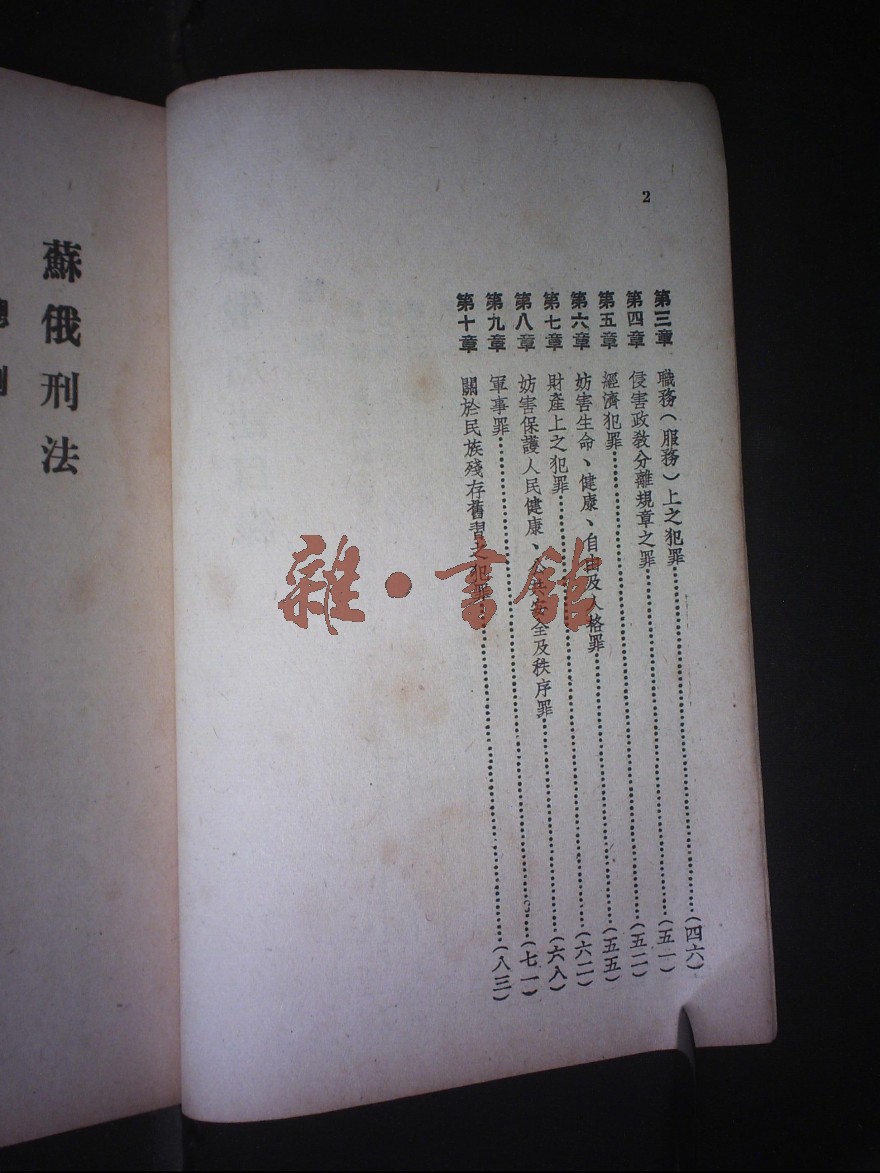 2
第三章 職務(服務)上之犯罪……(四六)
第四章 侵害政教分離規章之罪……(五一)
第五章 經濟犯罪……(五二)
第六章 妨害生命、健康、自由及人格罪……(五五)
第七章 財產上之犯罪……(六二)
第八章 妨害保護人民健康、公共安全及秩序罪……(六八)
第九章 軍事罪……(七一)
第十章 關於民族殘存舊習之犯罪……(八三)
雜·書館
蘇俄刑法